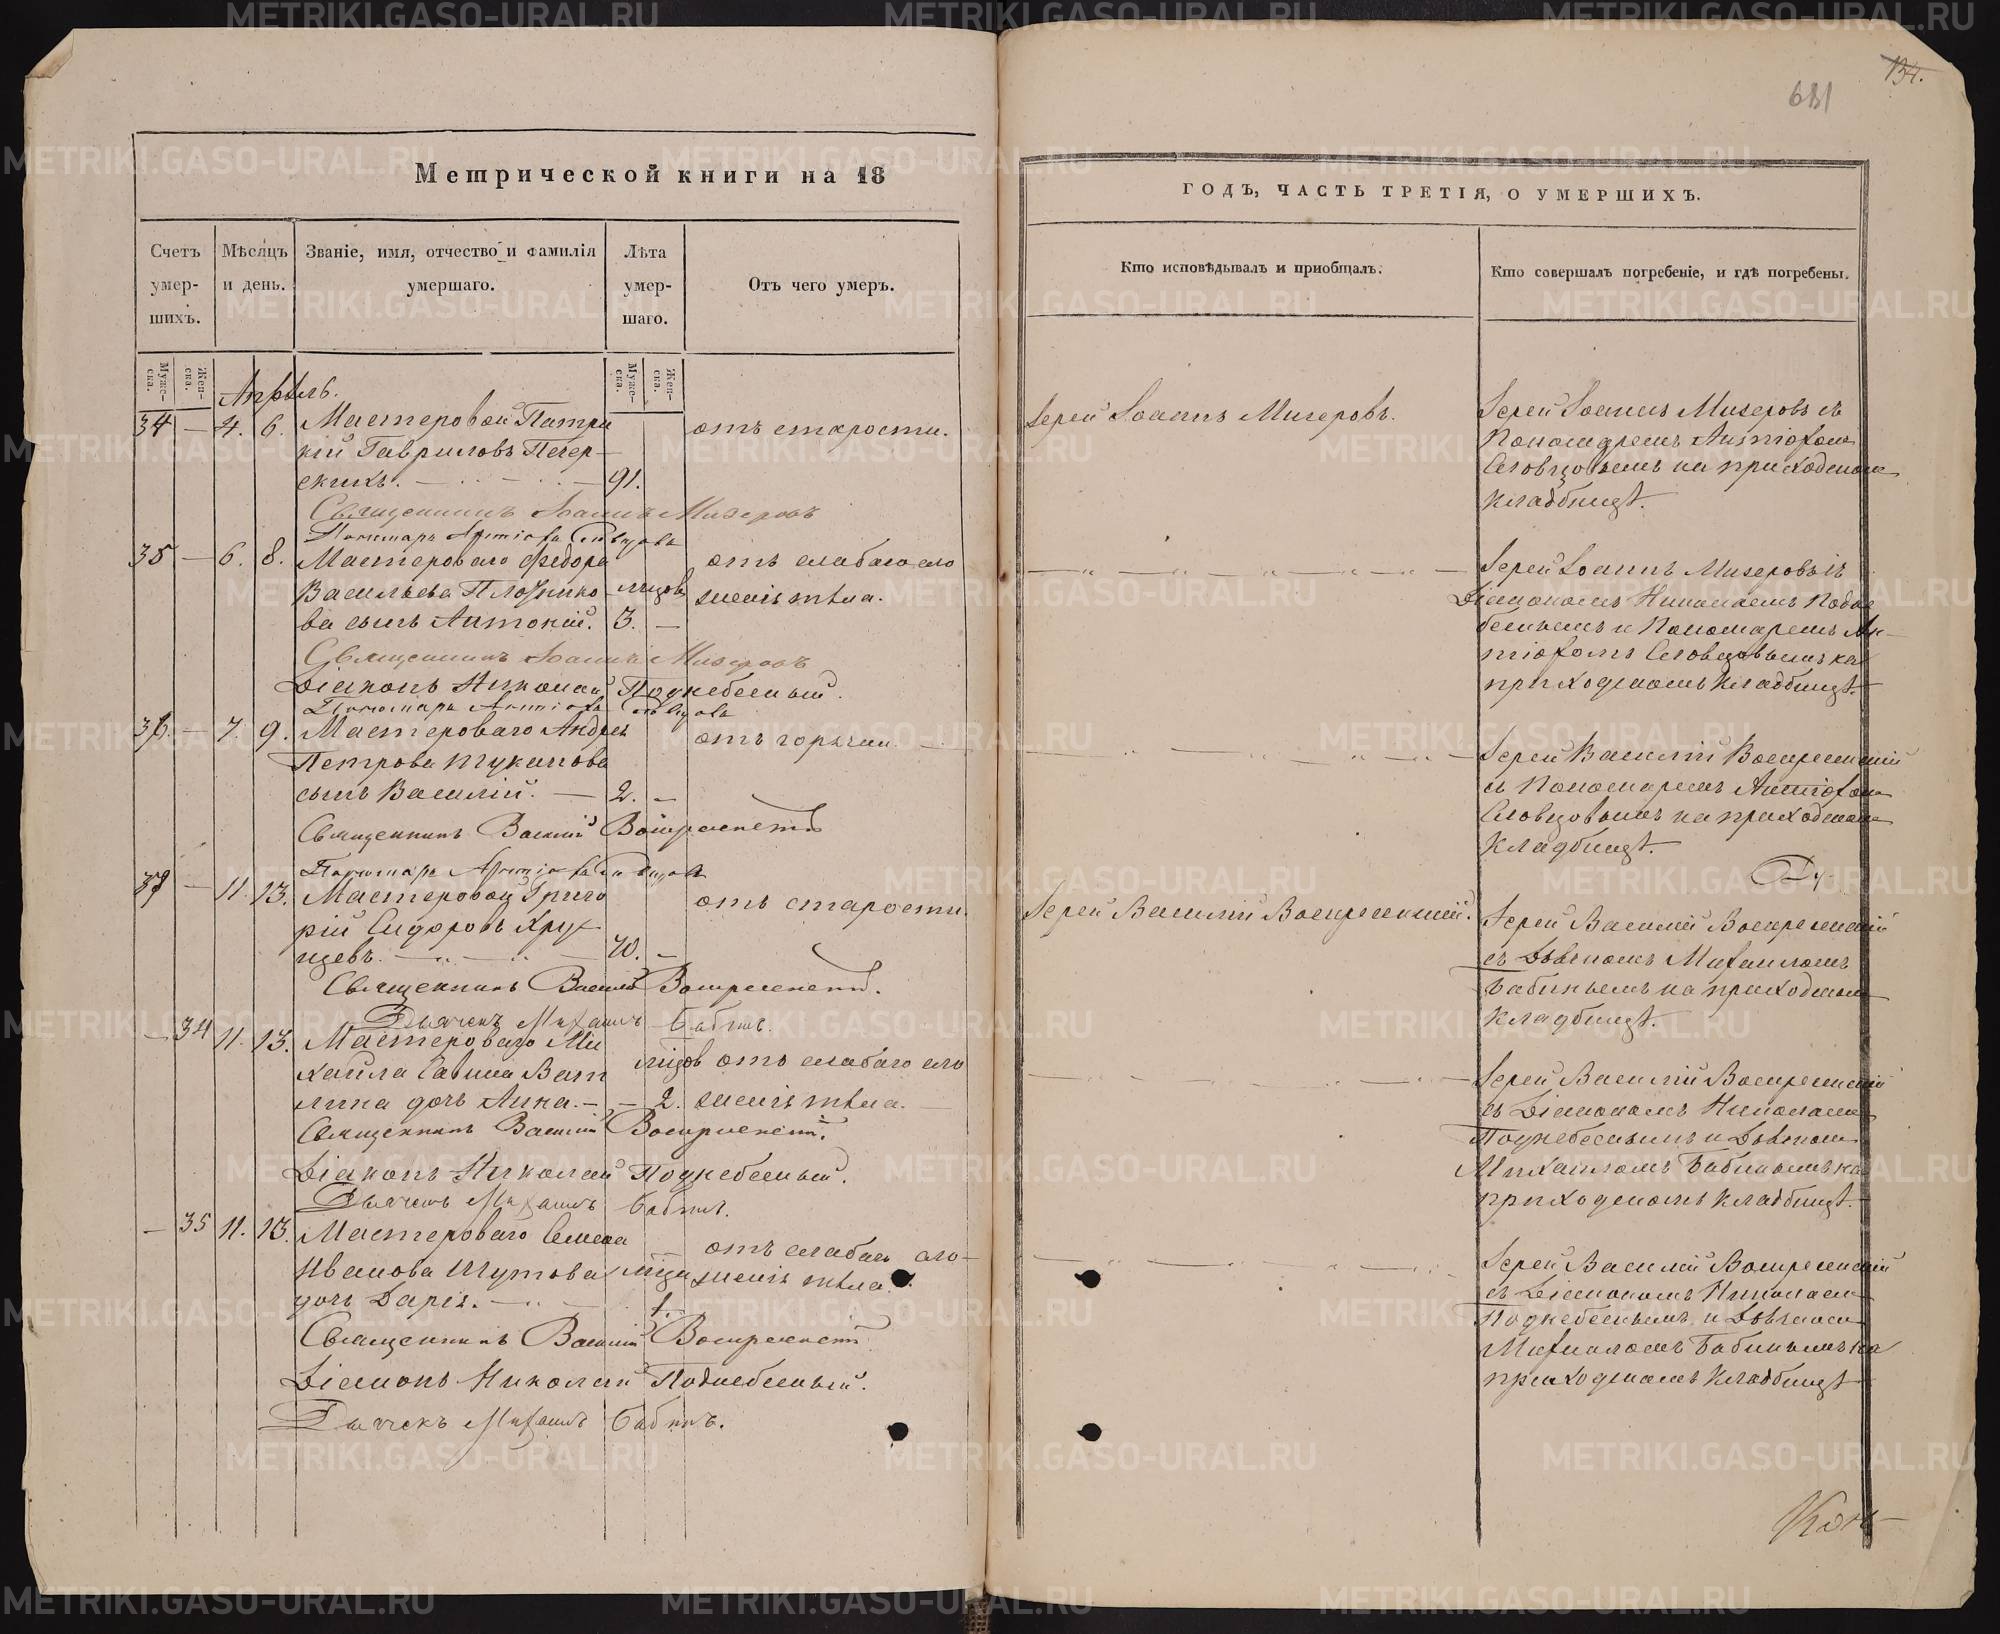 134.
Метрической книги на 18
ГОДЪ, ЧАСТЬ ТРЕТІЯ, О УМЕРШИХЪ.
Счетъ умер-шихъ.
Мѣсяцъ и день.
Званіе, имя, отчество и фамилія умершаго.
Лѣта умер-шаго.
Отъ чего умеръ.
Кто исповѣдывалъ и приобщалъ.
Кто совершалъ погребеніе, и гдѣ погребены.
Муже-ска.
Жен-ска.
Муже-ска.
Жен-ска.
Апрѣль.
34 — 4. 6. Мастеровой Патри
кій Гавриловъ Печер-
скихъ. — 91.
отъ старости.
Іерей Іоаннъ Мизеровъ.
Іерей Іоаннъ Мизеровъ съ
Пономаремъ Антіохомъ
Словцовымъ на приходскомъ
кладбищѣ.
Священникъ Іоаннъ Мизеровъ
Пономарь Антіохъ Словцовъ
35 — 6. 8. Мастероваго Федора
Васильева Плотнико- мѣсяцов
ва сынъ Антоній. 3. —
отъ слабаго сло
женія тѣла.
Іерей Іоаннъ Мизеровъ съ
Діакономъ Николаемъ Подне
беснымъ и Пономаремъ Ан-
тіохомъ Словцовымъ на
приходскомъ кладбищѣ.
Священникъ Іоаннъ Мизеровъ
Діаконъ Николай Поднебесный.
Пономарь Антіохъ Словцовъ
36. — 7. 9. Мастероваго Андрея
Петрова Туканова
сынъ Василій. — 2. —
отъ горячки.
Іерей Василій Воскресенскій
съ Пономаремъ Антіохомъ
Словцовымъ на приходскомъ
кладбищѣ.
Священникъ Василій Воскресенскій
Пономарь Антіохъ Словцовъ
37 — 11. 13. Мастеровой Григо
рій Сидоровъ Хру
щевъ. — 70. —
отъ старости.
Іерей Василій Воскресенскій.
Іерей Василій Воскресенскій
съ Дьячкомъ Михаиломъ
Бабинымъ на приходскомъ
кладбищѣ.
Священникъ Василій Воскресенскій.
Дьячекъ Михаилъ Бабинъ.
— 34 11. 13. Мастероваго Ми
хайла Савина Вят
кина дочь Анна. — — 2.
отъ слабаго сло
женія тѣла. —
Іерей Василій Воскресенскій
съ Діакономъ Николаемъ
Поднебеснымъ и Дьячкомъ
Михаиломъ Бабинымъ на
приходскомъ кладбищѣ.
Священникъ Василій Воскресенскій.
Діаконъ Николай Поднебесный.
Дьячекъ Михаилъ Бабинъ.
— 35 11. 13. Мастероваго Семена
Иванова Шутова
дочь Дарья. — 1.
отъ слабаго сло-
женія тѣла.
Іерей Василій Воскресенскій
съ Діакономъ Николаемъ
Поднебеснымъ и Дьячкомъ
Михаиломъ Бабинымъ на
приходскомъ кладбищѣ
Священникъ Василій Воскресенскій
Діаконъ Николай Поднебесный.
Дьячекъ Михаилъ Бабинъ.
METRIKI.GASO-URAL.RU